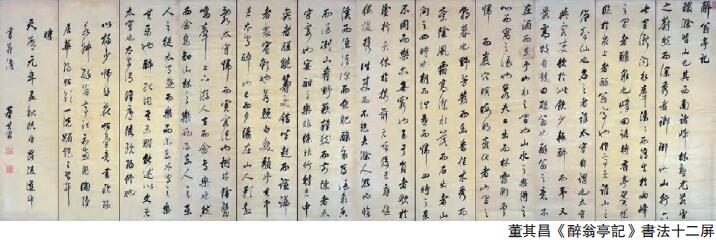 醉翁亭記
環滁皆山也其西南諸峰林壑尤美望
之蔚然而深秀者瑯琊也山行六
七里漸聞水聲潺潺而瀉出於兩峰
之間者釀泉也峰回路轉有亭翼然
臨於泉上者醉翁亭也作亭者誰山之
僧智仙也名之者誰太守自謂也太守
與客來飲於此飲少輒醉而年又
最高故自號曰醉翁也醉翁之意不
在酒而在乎山水之間也山水之樂得之
心而寓之酒也若夫日出而林霏開雲
歸而巖穴暝晦明變化者山間之
朝暮也野芳發而幽香佳木秀而
繁陰風霜高潔水落而石出者山
間之四時也朝而往暮而歸四時之景
不同而樂亦無窮也至于負者歌於
塗行者休於樹前者呼後者應傴
僂提攜往來而不絕者滁人游也臨
溪而漁溪深而魚肥釀泉為酒泉香
而酒洌山肴野蔌雜然而前陳者太
守宴也宴酣之樂非絲非竹射者中
弈者勝觥籌交錯坐起而諠譁
者衆賓歡也蒼顏白髮頹乎其中
者太守醉也已而夕陽在山人影散
亂太守歸而賓客從也樹林陰翳
鳴聲上下游人去而禽鳥樂也然
而禽鳥知山林之樂而不知人之樂
人知從太守游而樂而不知太守之樂
其樂也醉能同其樂醒能述以文者
太守也太守謂誰廬陵歐陽修也
時
天啓元年孟秋
董其昌
董其昌《醉翁亭記》書法十二屏